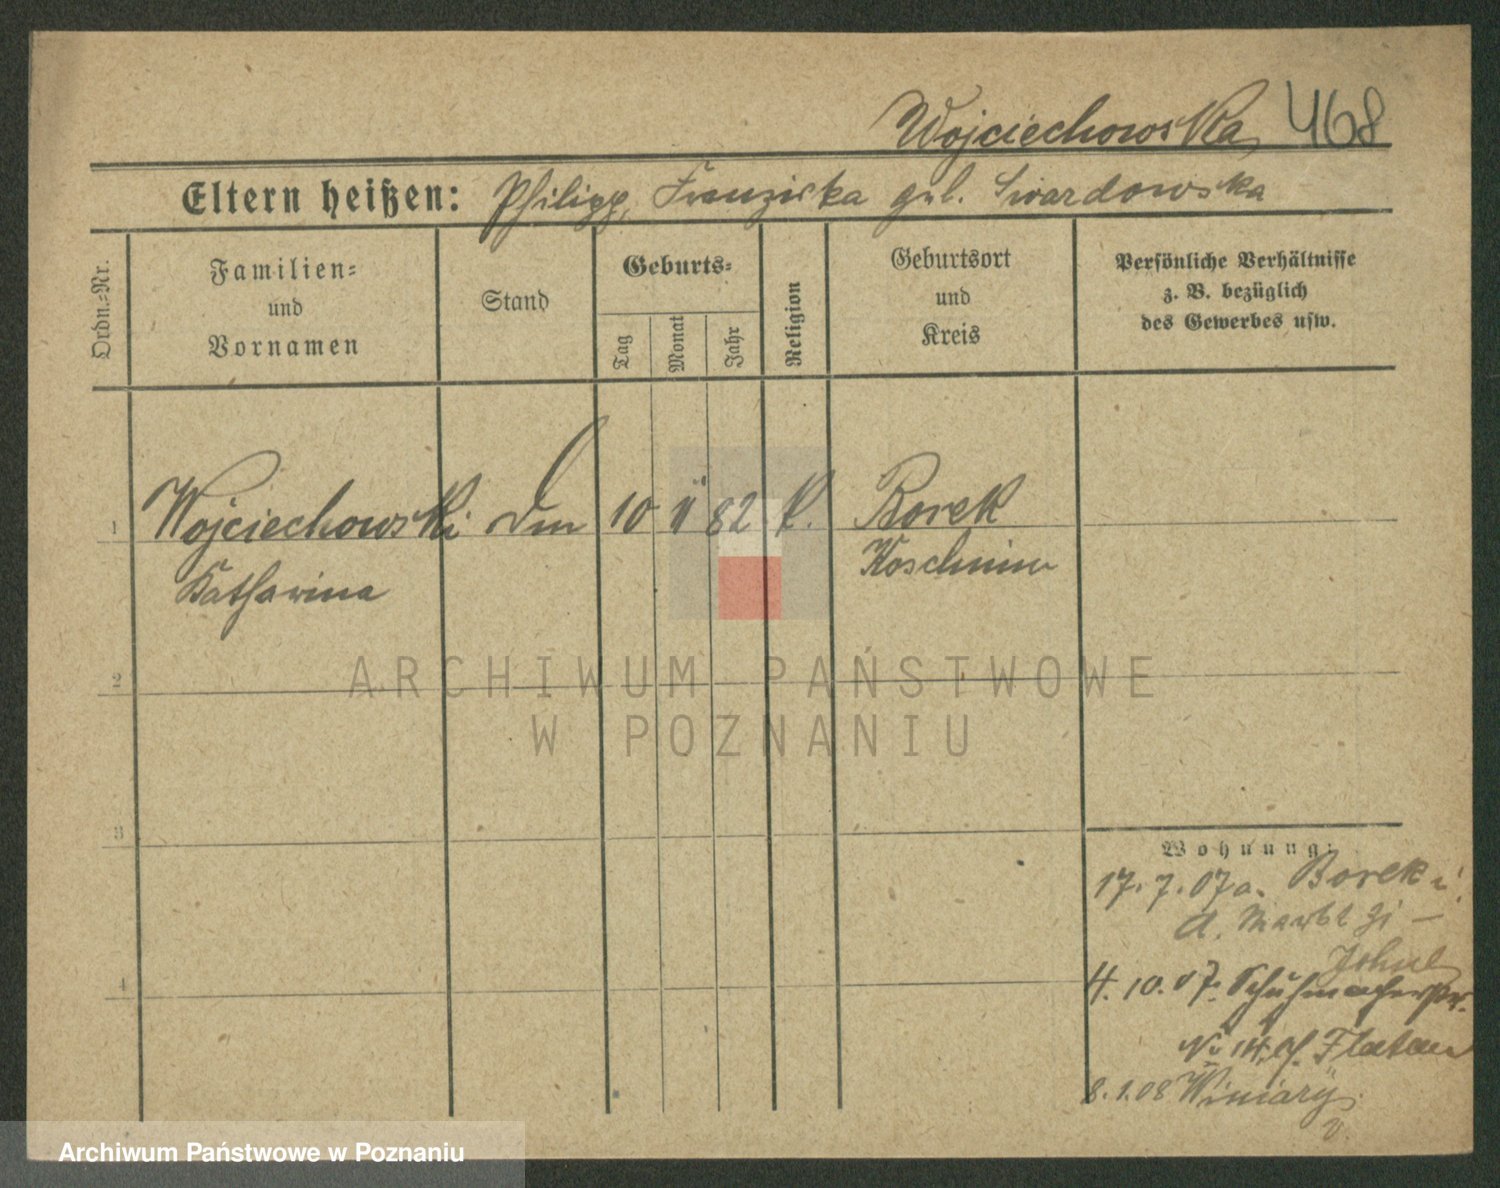 Wojciechowska 468
Eltern heißen: Philipp, Franziska geb. Swardowska
Ordn.-Nr.
Familien-
und
Vornamen
Stand
Geburts-
Tag
Monat
Jahr
Religion
Geburtsort
und
Kreis
Persönliche Verhältnisse
z. B. bezüglich
des Gewerbes usw.
1 Wojciechowski 10 82 k. Borek
Katharina Koschmin
2
ARCHIWUM PAŃSTWOWE
W POZNANIU
3
Wohnung:
17. 7. 07 a. Borek
a. Markt
4
4. 10. 07. Schuhmacherstr.
No 14 Flatau
8. 1. 08 Winiary
Archiwum Państwowe w Poznaniu